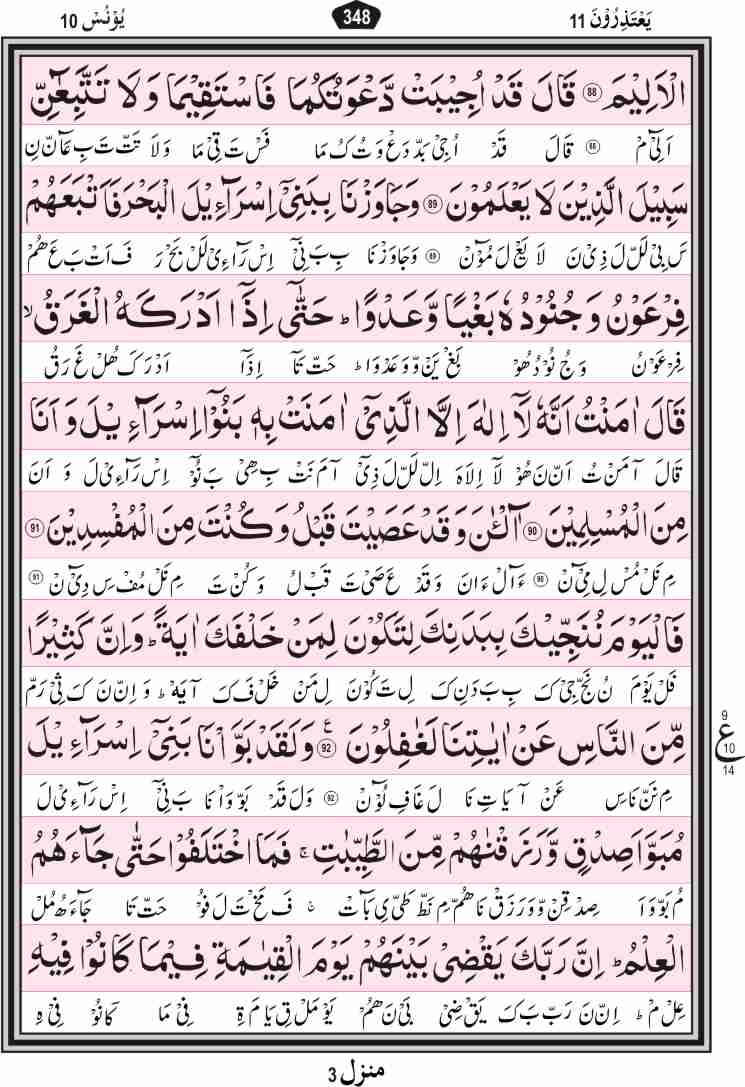 یَعْتَذِرُوْنَ 11
348
یُوْنُسْ 10
الْاَلِیْمَ ﴿88﴾ قَالَ قَدْ اُجِیْبَتْ دَّعْوَتُكُمَا فَاسْتَقِیْمَا وَلَا تَتَّبِعٰٓنِّ
اَلِیْ مَ ﴿88﴾ قَالَ قَدْ اُجِیْ بَدْ دَعْ وَتُ كُ مَا فَسْ تَ قِیْ مَا وَلَا تَتْ تَ بِ عَآنْ نِ
سَبِیْلَ الَّذِیْنَ لَا یَعْلَمُوْنَ ﴿89﴾ وَجَاوَزْنَا بِبَنِیْۤ اِسْرَآءِیْلَ الْبَحْرَ فَاَتْبَعَهُمْ
سَ بِیْ لَلْ لَ ذِیْ نَ لَا یَعْ لَ مُوْٓنْ ﴿89﴾ وَجَاوَزْ نَا بِ بَ نِیْٓ اِسْ رَآءِیْ لَلْ بَحْ رَ فَ اَتْ بَ عَ هُمْ
فِرْعَوْنُ وَجُنُوْدُهٗ بَغْیًا وَّعَدْوًا ؕ حَتّٰۤی اِذَاۤ اَدْرَكَهُ الْغَرَقُ ۙ
فِرْعَوْنُ وَجُ نُوْدُهُوْ بَغْ یَنْ وْوَعَدْوَا ؕ حَتْ تَآ اِذَآ اَدْرَكَ هُلْ غَ رَقُ
قَالَ اٰمَنْتُ اَنَّهٗ لَاۤ اِلٰهَ اِلَّا الَّذِیْۤ اٰمَنَتْ بِهٖ بَنُوْۤا اِسْرَآءِیْلَ وَاَنَا
قَالَ آمَنْ تُ اَنْ نَ هُوْ لَآ اِلَاهَ اِلْ لَلْ لَ ذِیْٓ آمَ نَتْ بِ هِیْ بَ نُوْٓ اِسْ رَآءِیْ لَ وَ اَنَ
مِنَ الْمُسْلِمِیْنَ ﴿90﴾ آٰلْـٰٔنَ وَقَدْ عَصَیْتَ قَبْلُ وَكُنْتَ مِنَ الْمُفْسِدِیْنَ ﴿91﴾
مِ نَلْ مُسْ لِ مِیْٓ نْ ﴿90﴾ ءَآلْ ءَانَ وَقَدْ عَصَیْ تَ قَبْ لُ وَكُنْ تَ مِ نَلْ مُفْ سِ دِیْٓ نْ ﴿91﴾
فَالْیَوْمَ نُنَجِّیْكَ بِبَدَنِكَ لِتَكُوْنَ لِمَنْ خَلْفَكَ اٰیَةً ؕ وَاِنَّ كَثِیْرًا
فَلْ یَوْمَ نُ نَجْ جِیْ كَ بِ بَ دَنِ كَ لِ تَ كُوْنَ لِ مَنْ خَلْ فَ كَ آیَهْ ؕ وَ اِنْ نَ كَ ثِیْ رَمْ
مِّنَ النَّاسِ عَنْ اٰیٰتِنَا لَغٰفِلُوْنَ ﴿92﴾ ع وَلَقَدْ بَوَّاْنَا بَنِیْۤ اِسْرَآءِیْلَ
مِ نَنْ نَاسِ عَنْ آ یَاتِ نَا لَ غَافِ لُوْٓنْ ﴿92﴾ وَلَ قَدْ بَوْ وَاْ نَا بَ نِیْٓ اِسْ رَآءِیْ لَ
9 ع 10 14
مُبَوَّاَ صِدْقٍ وَّرَزَقْنٰهُمْ مِّنَ الطَّیِّبٰتِ ۚ فَمَا اخْتَلَفُوْا حَتّٰی جَآءَهُمُ
مُ بَوْ وَ اَ صِدْ قِنْ وْوَرَزَقْ نَا هُمْ مِ نَطْ طَیْ یِ بَاتْ ۚ فَ مَخْ تَ لَ فُوْ حَتْ تَا جَآءَهُ مُلْ
الْعِلْمُ ؕ اِنَّ رَبَّكَ یَقْضِیْ بَیْنَهُمْ یَوْمَ الْقِیٰمَةِ فِیْمَا كَانُوْا فِیْهِ
عِلْ مْ ؕ اِنْ نَ رَبْ بَ كَ یَقْ ضِیْ بَیْ نَ هُمْ یَوْ مَلْ قِ یَا مَ ةِ فِیْ مَا كَانُوْ فِیْ هِ
منزل 3